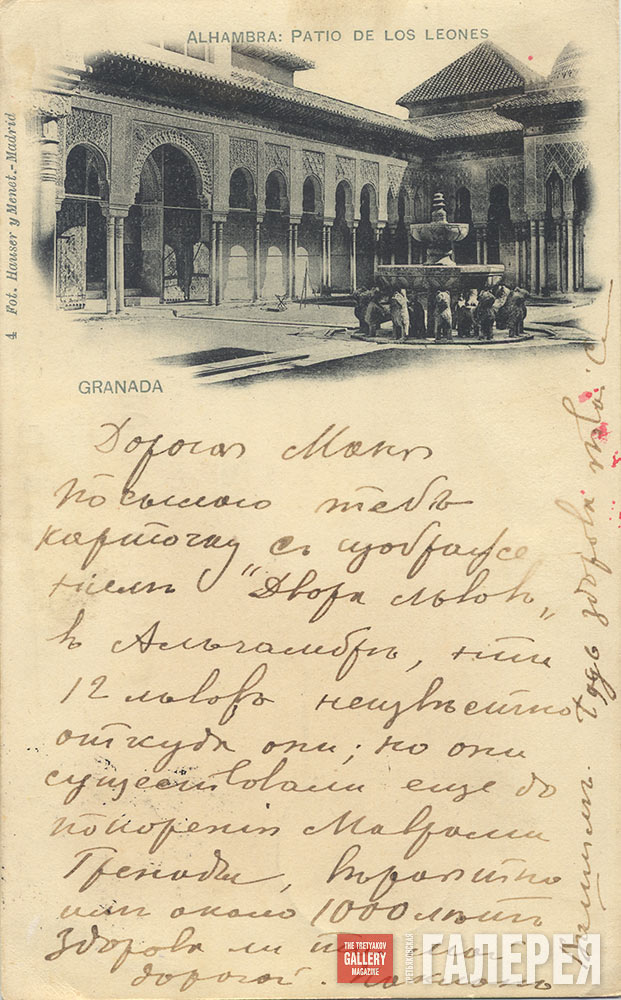 ALHAMBRA: PATIO DE LOS LEONES
4 Fot. Hauser y Menet.-Madrid
GRANADA
Дорогая Маня
посылаю тебѣ
карточку съ изображе
ніемъ "Двора львовъ"
въ Альгамбрѣ, эти
12 львовъ неизвѣстно
откуда они; но они
существовали еще до
покоренія Маврами
Гренады, вѣроятно
имъ около 1000 лѣтъ
Здорова ли ты мой
дорогой. поклонъ
Будь здорова твой
THE TRETYAKOV
GALLERY
MAGAZINE
ТРЕТЬЯКОВСКАЯ
ГАЛЕРЕЯ